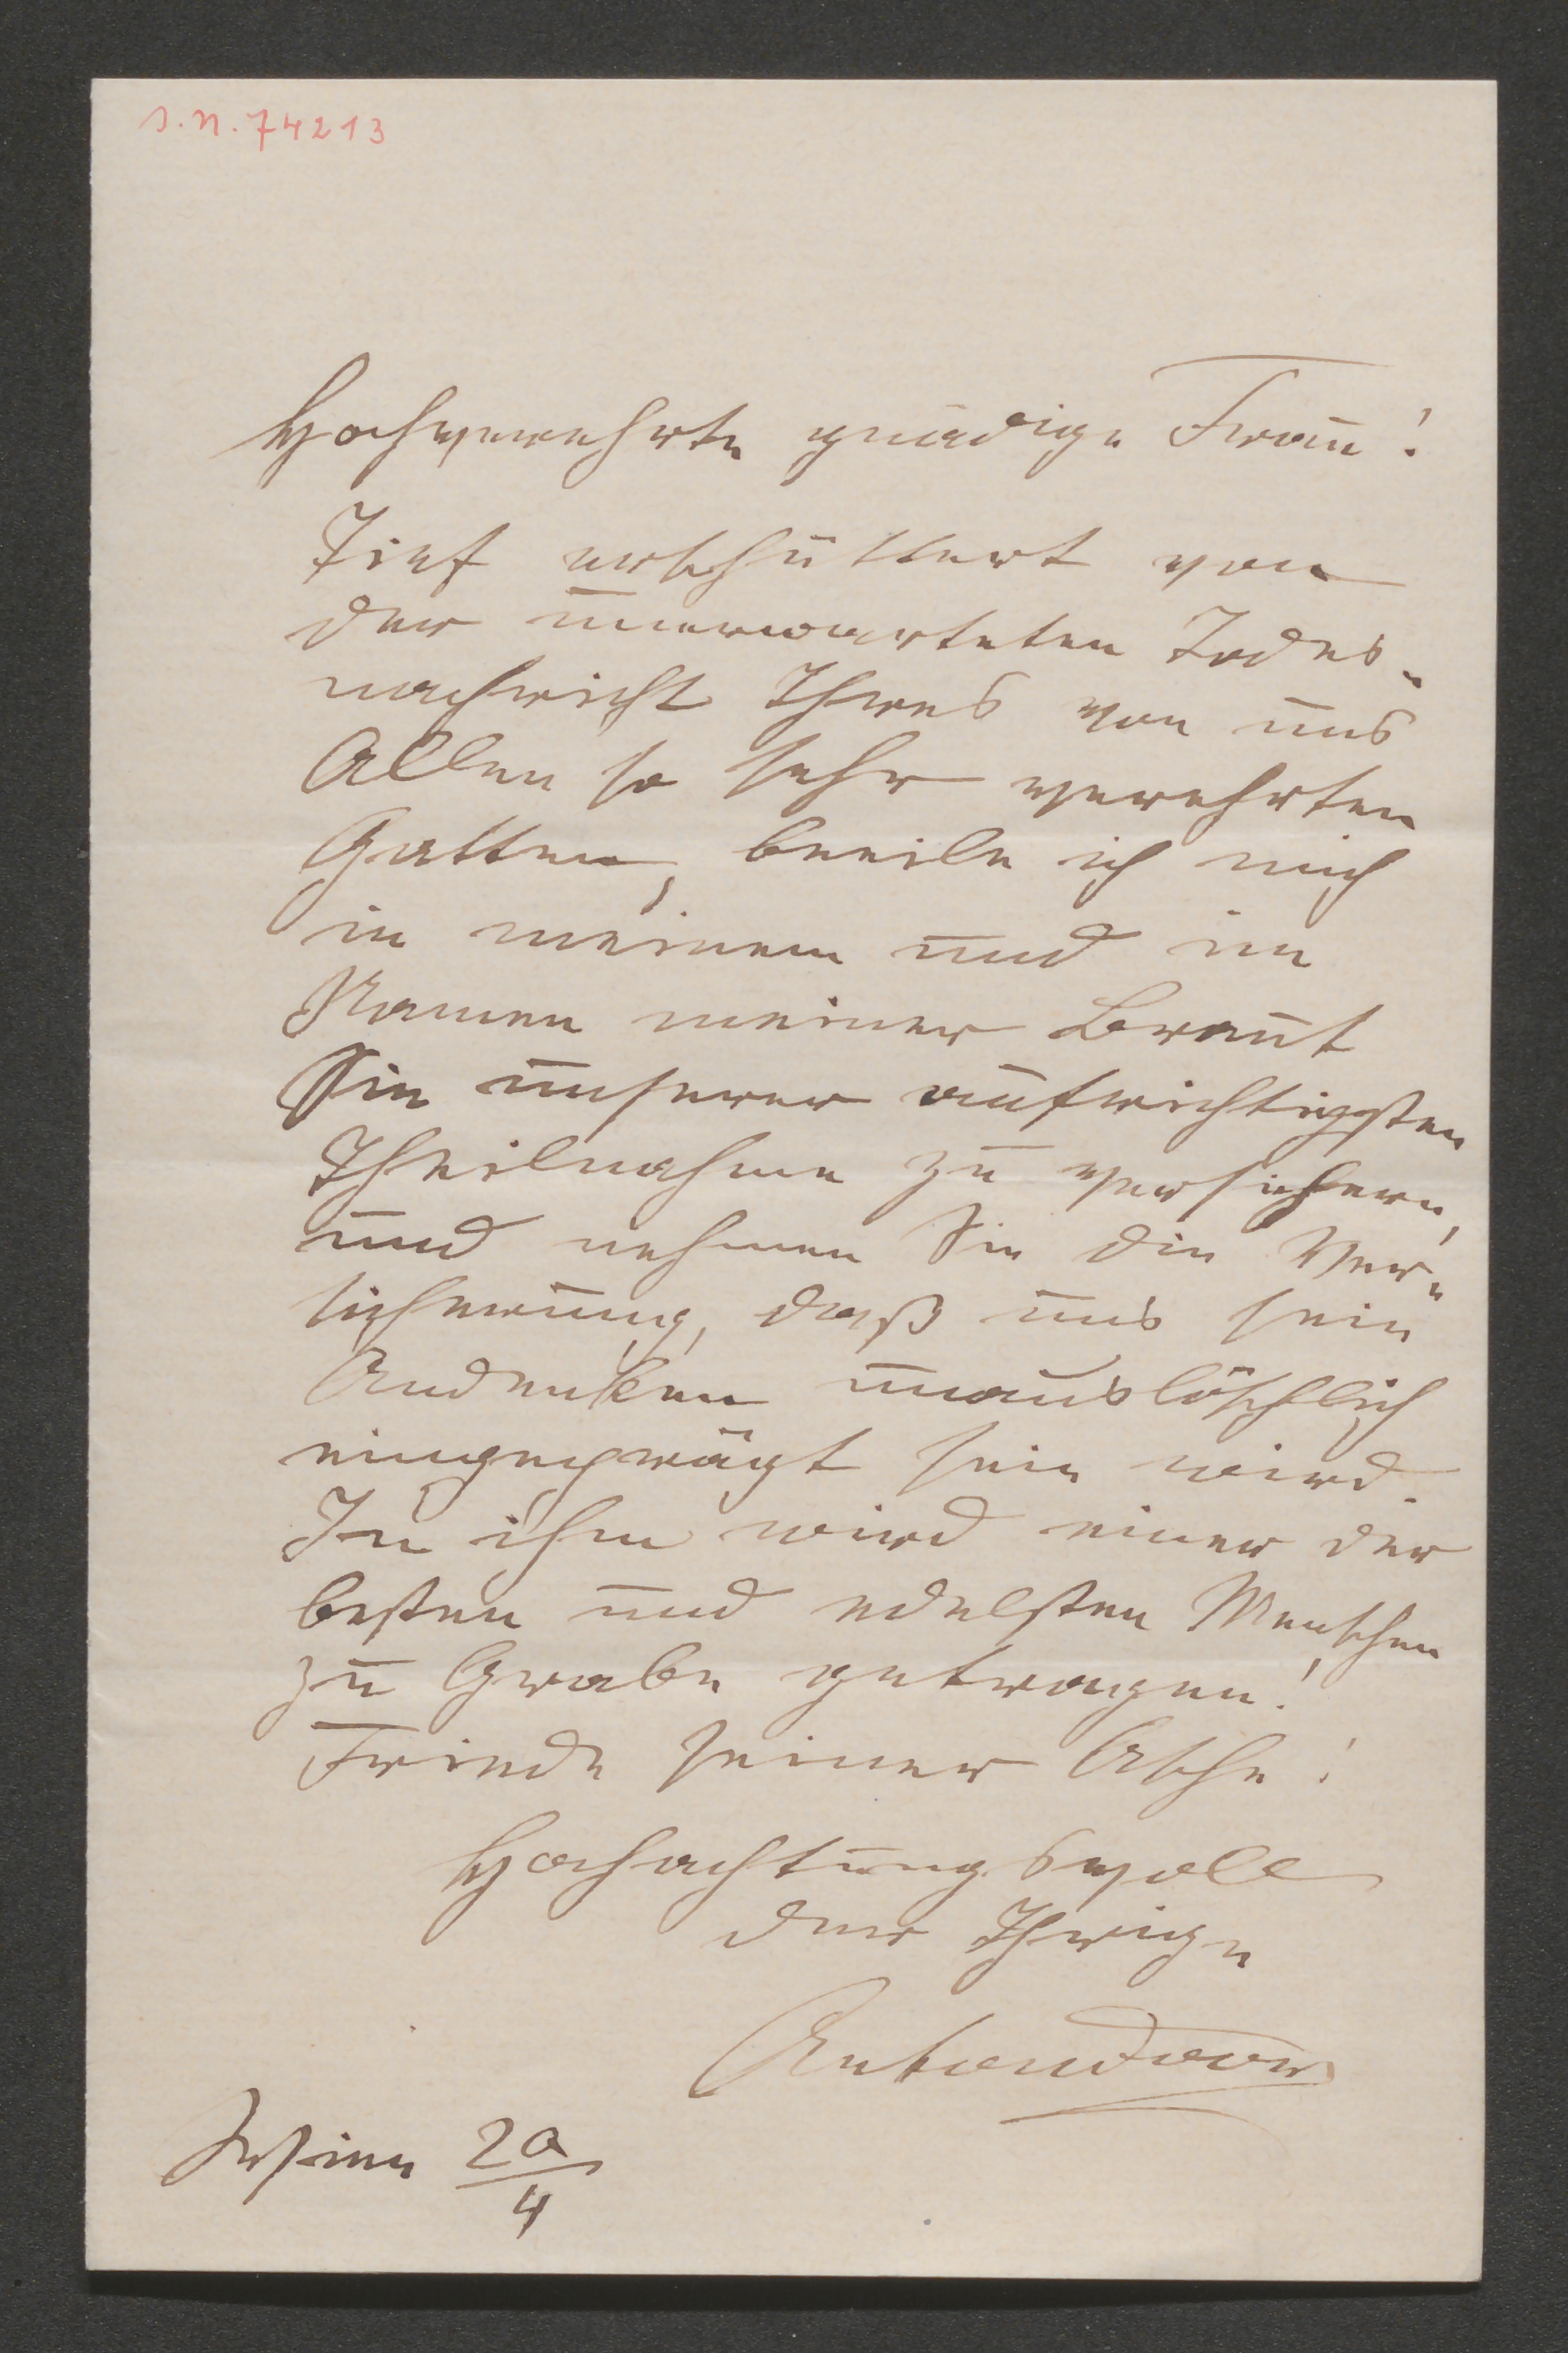 I.N. 74213
Hochverehrte gnädige Frau!
Tief erschüttert von
der unerwarteten Todes-
nachricht Ihres von uns
Allen so sehr verehrten
Gatten, beeile ich mich
in meinem und im
Namen meiner Braut
Sie unserer aufrichtigsten
Theilnahme zu versichern,
und nehmen Sie die Ver-
sicherung, daß uns sein
Andenken unauslöschlich
eingeprägt sein wird.
In ihm wird einer der
besten und edelsten Menschen
zu Grabe getragen!
Friede seiner Asche!
Hochachtungsvoll
der Ihrige
Anton Door
Wien 20/4